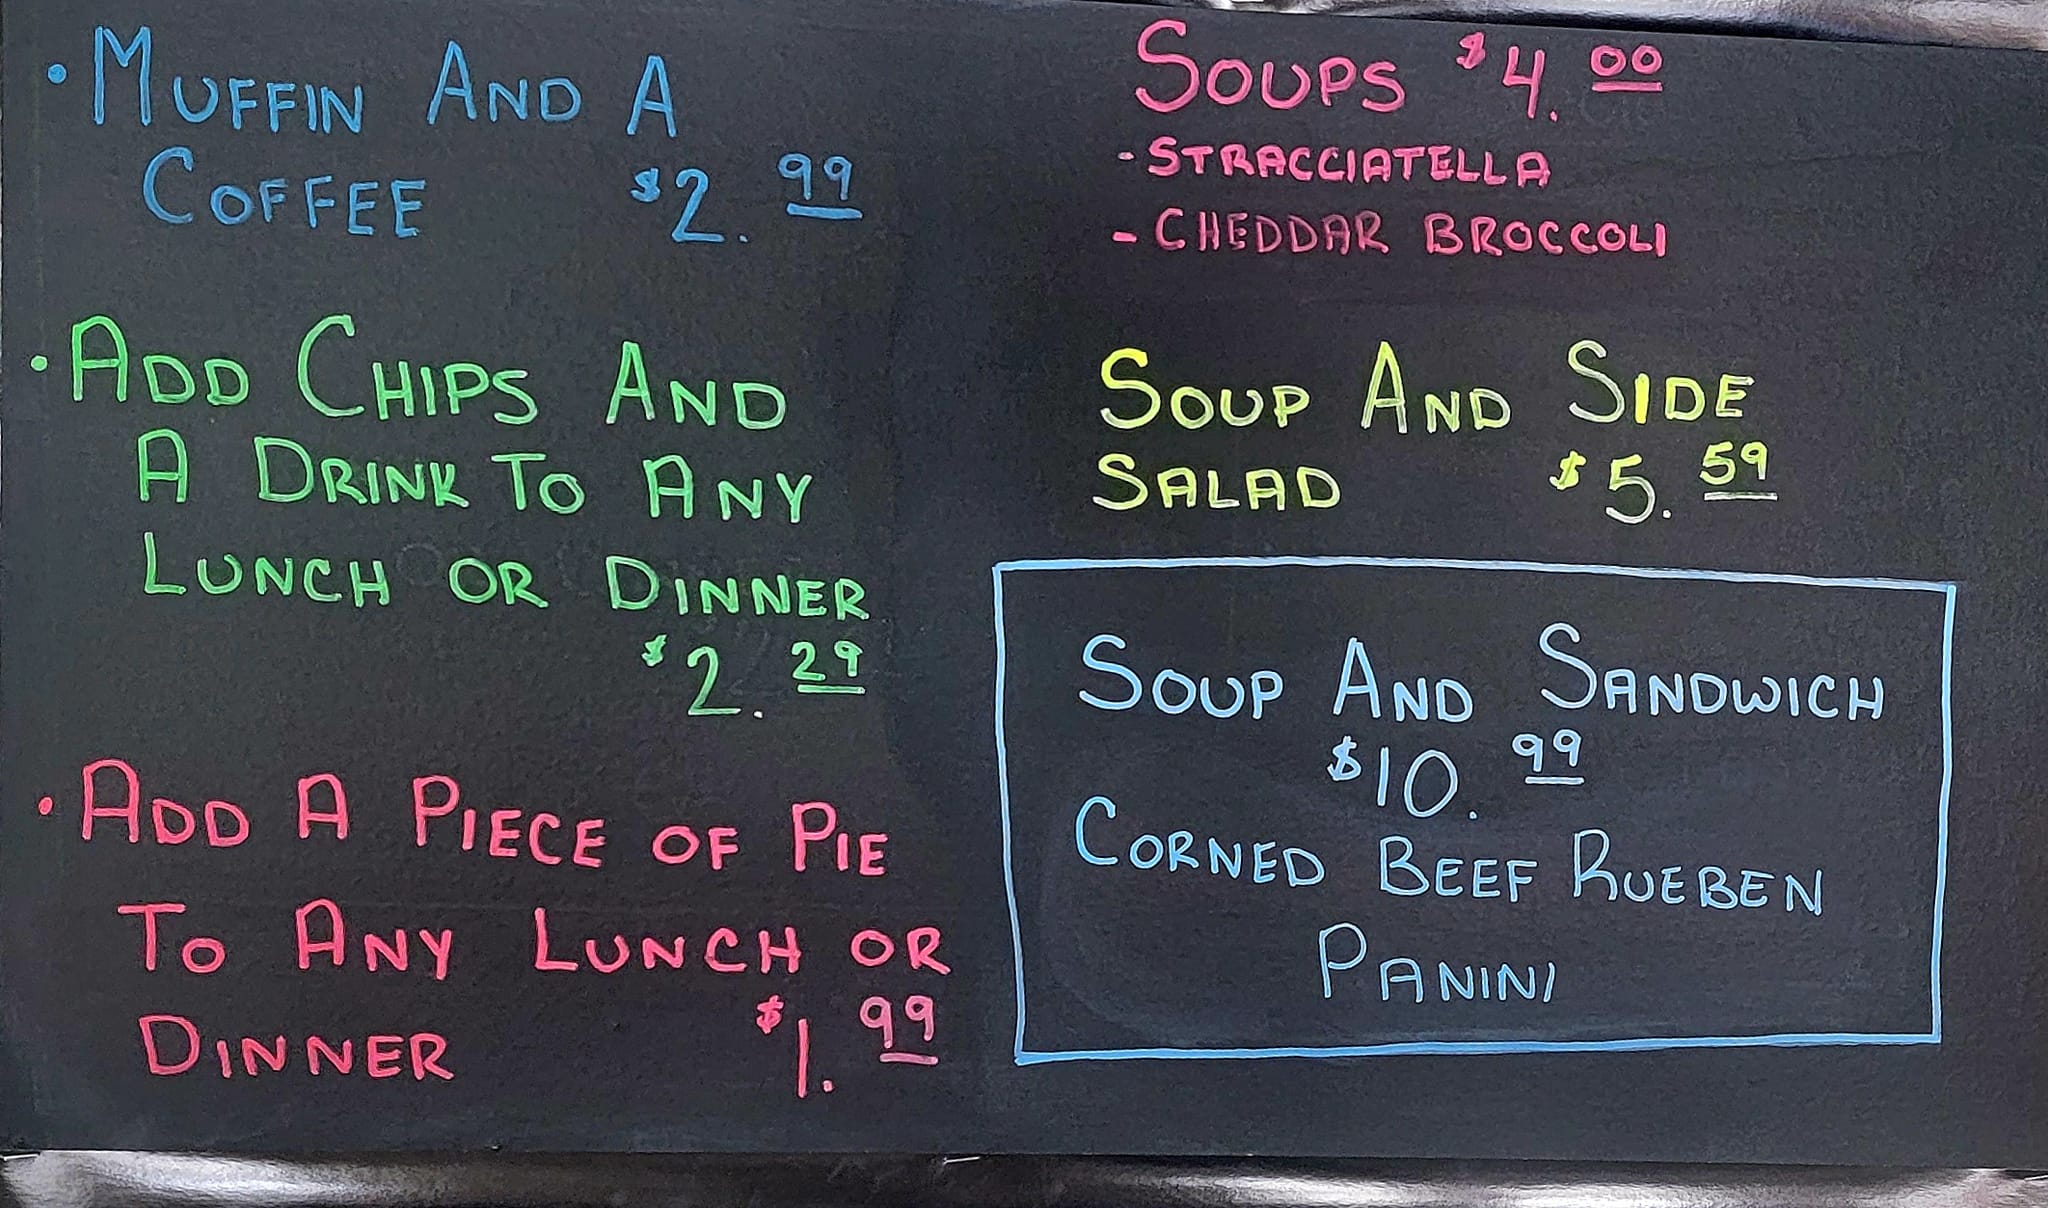 • MUFFIN AND A
COFFEE $2.99
• ADD CHIPS AND
A DRINK TO ANY
LUNCH OR DINNER
$2.29
• ADD A PIECE OF PIE
TO ANY LUNCH OR
DINNER $1.99
SOUPS $4.00
- STRACCIATELLA
- CHEDDAR BROCCOLI
SOUP AND SIDE
SALAD $5.59
SOUP AND SANDWICH
$10.99
CORNED BEEF RUEBEN
PANINI